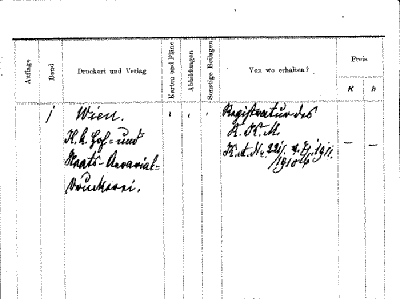 Auflage Band Druckort und Verlag Karten und Pläne Abbildungen Sonstige Beilagen Von wo erhalten? Preis
K h
1 Wien. Registratur des
K. k. Hof- und K. K. M
Staats-Aerarial-
Druckerei.